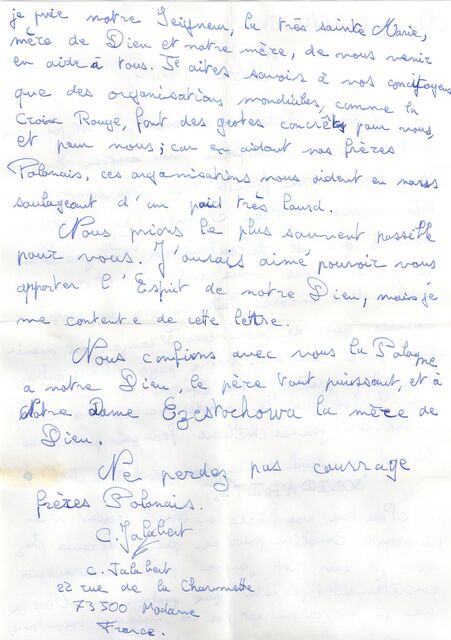 je prie notre Seigneur, la très sainte Marie,
mère de Dieu et notre mère, de vous venir
en aide à tous. Faites savoir à vos concitoyens
que des organisations mondiales, comme la
Croix Rouge, font des gestes concrêts pour vous,
et pour nous; car en aidant nos frères
Polonais, ces organisations nous aident en nous
soulageant d'un poid très lourd.
Nous prions le plus souvent possible
pour vous. J'aurais aimé pouvoir vous
apporter l'Esprit de notre Dieu, mais je
me contente de cette lettre.
Nous confions avec vous la Pologne
a notre Dieu, le père tout puissant, et à
Notre Dame Ezcstochowa la mère de
Dieu.
Ne perdez pas courrage
frères Polonais.
C. Jalabert
C. Jalabert
22 rue de la Charmette
73500 Modane
France.